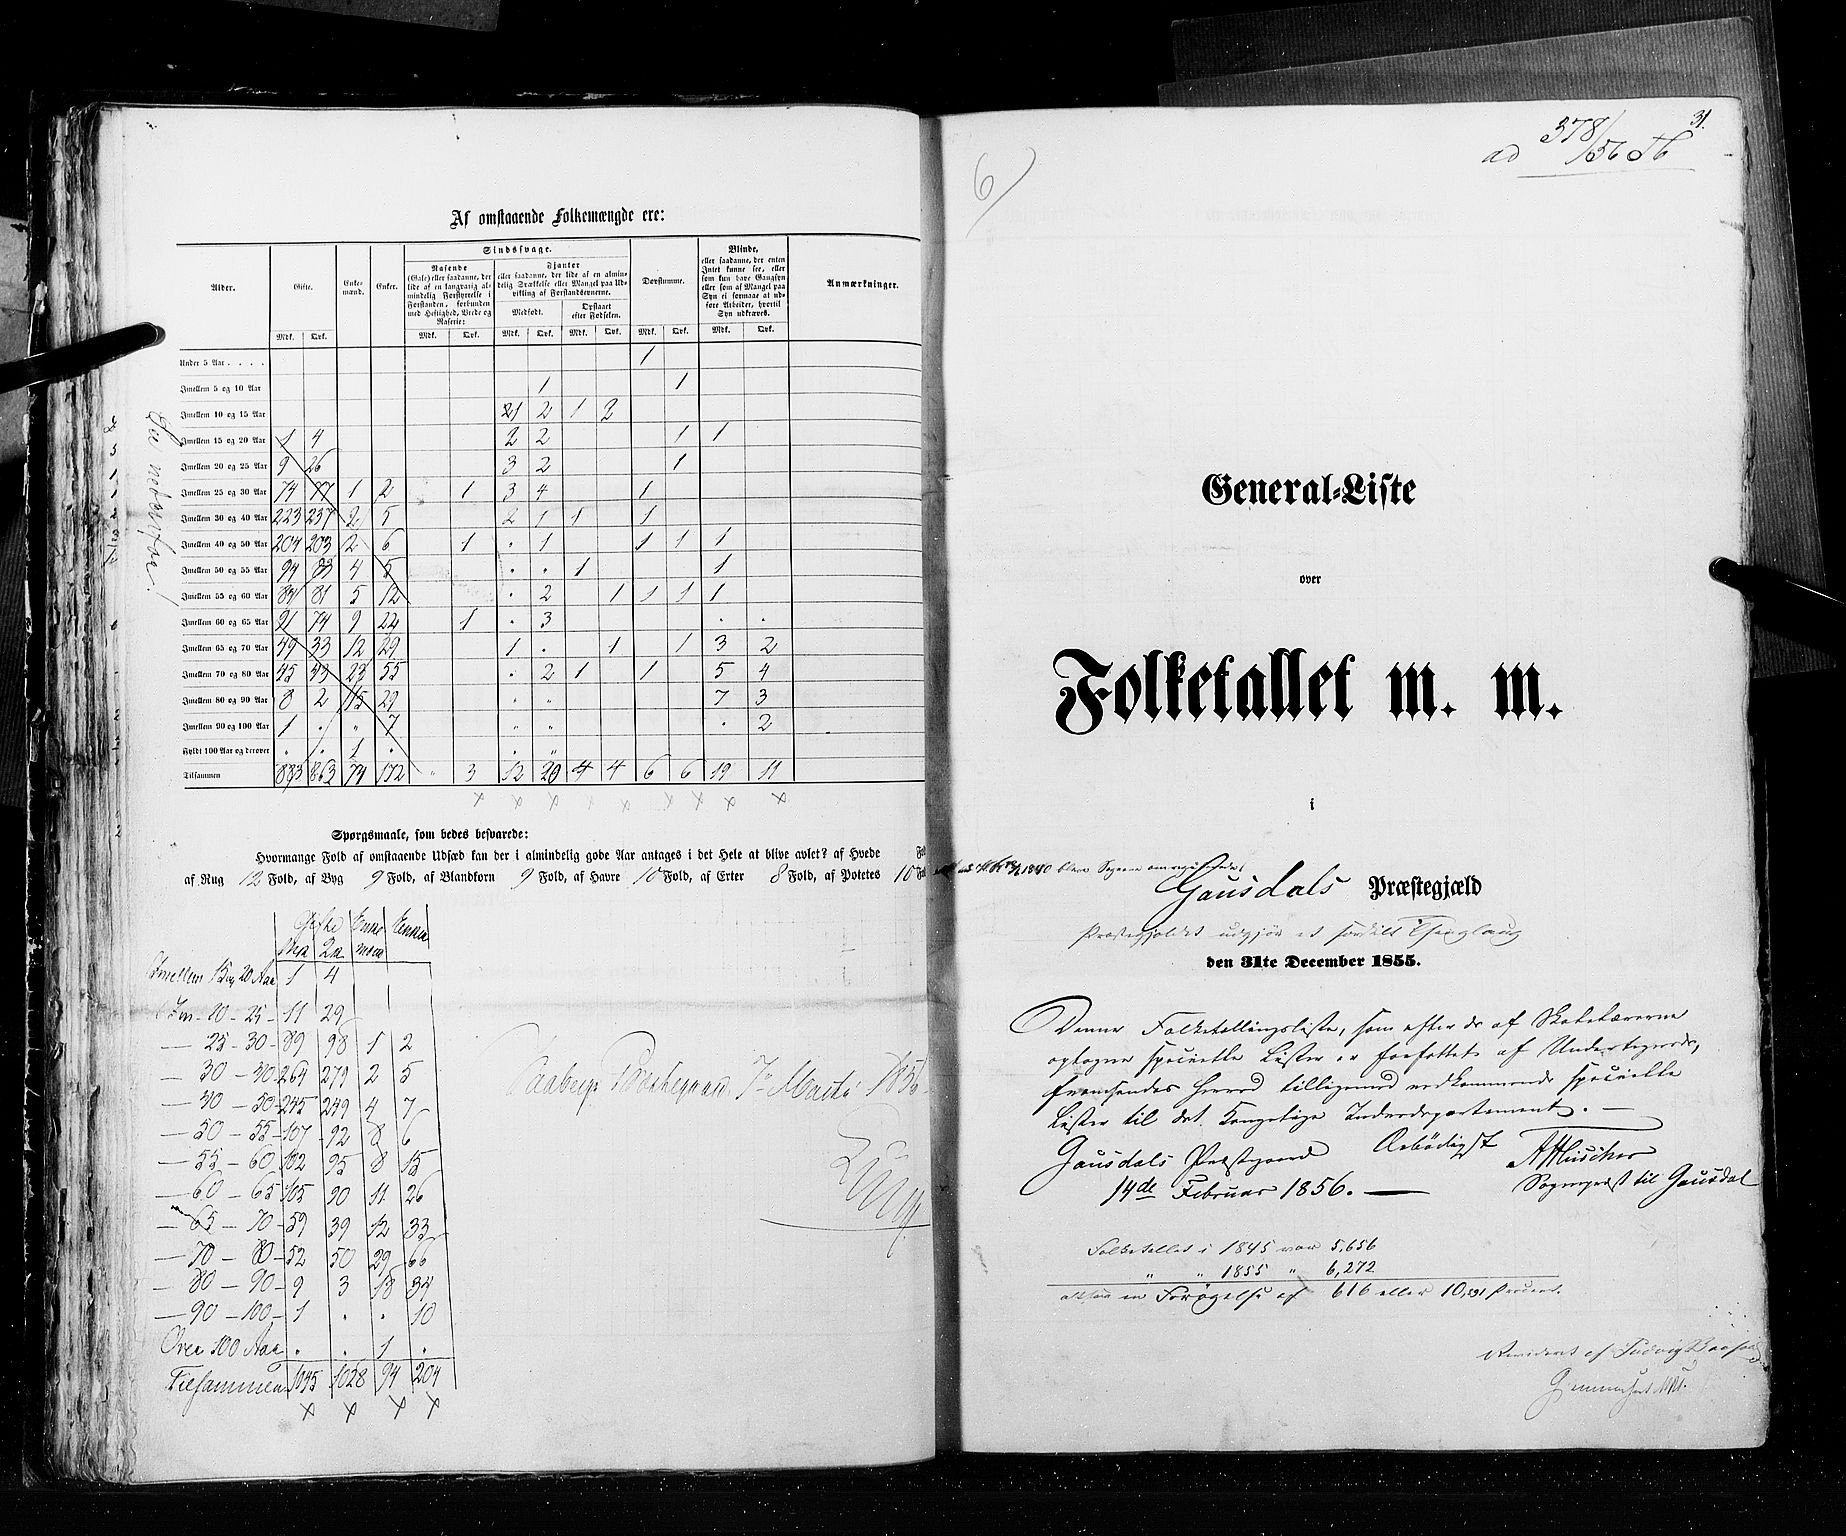 Af omstaaende Folkemængde ere:
Alder. Gifte. Enkemænd. Enker. Sindssvage. Døvstumme. Blinde, Anmærkninger.
Rasende (Gale) eller saadanne, der lide af en langvarig almindelig Forstyrrelse i Forstanden, forbunden med Heftighed, Vrede og Raserie:
Fjanter eller saadanne, der lide af en almindelig Svækkelse eller Mangel paa Udvikling af Forstandsevnerne.
Medfødt. Opstaaet efter Fødselen.
eller saadanne, der enten Intet kunne see, eller som kun have Gangsyn eller som af Mangel paa Syn ei formaae at udføre Arbeider, hvortil Syn udkræves.
Mdk. Qvk. Mdk. Qvk. Mdk. Qvk. Mdk. Qvk. Mdk. Qvk. Mdk. Qvk.
Under 5 Aar . . . . 1
Imellem 5 og 10 Aar 1 1
Imellem 10 og 15 Aar 21 2 1 2
Imellem 15 og 20 Aar 1 4 2 2 1 1
Imellem 20 og 25 Aar 9 26 3 2 1
Imellem 25 og 30 Aar 74 77 1 2 1 3 4 1
Imellem 30 og 40 Aar 223 237 2 5 2 1 1 1
Imellem 40 og 50 Aar 204 203 2 6 1 . 1 1 1 1
Imellem 50 og 55 Aar 94 83 4 5 . . 1 1
Imellem 55 og 60 Aar 84 81 5 12 . 2 1 1 1 1
Imellem 60 og 65 Aar 91 74 9 22 1 . 3 . .
Imellem 65 og 70 Aar 49 33 12 29 1 . 1 1 3 2
Imellem 70 og 80 Aar 45 43 23 55 . 2 1 1 5 4
Imellem 80 og 90 Aar 8 2 15 29 . . 7 3
Imellem 90 og 100 Aar 1 . " 7 " " . 2
Fyldt 100 Aar og derover . . 1 . . "
Tilsammen 883 863 74 172 " 3 12 20 4 4 6 6 19 11
Se nedenfor!
Spørgsmaale, som bedes besvarede:
Hvormange Fold af omstaaende Udsæd kan der i almindelig gode Aar antages i det Hele at blive avlet? af Hvede
af Rug 12 Fold, af Byg 9 Fold, af Blandkorn 9 Fold, af Havre 10 Fold, af Erter 8 Fold, af Potetes 10
Gifte
Imellem 15 og 20 Aar 1 4
Im - 20 - 25 - 11 29
— 25 - 30 - 89 98 1 2
— 30 - 40 - 264 279 2 5
— 40 - 50 - 245 249 4 7
— 50 - 55 - 107 92 8 6
— 55 - 60 102 95 8 15
— 60 - 65 105 90 11 26
— 65 - 70 - 59 39 12 33
— 70 - 80 - 52 50 29 66
— 80 - 90 - 9 3 18 34
— 90 - 100 - 1 . . 10
Over 100 Aar . . 1 .
Tilsammen 1045 1028 94 204
Faaberg Præstegaard 7de Marts 1856
31.
ad 378/56
6)
General-Liste
over
Folketallet m. m.
i
Gausdals Præstegjæld
Præstegjældet udgjør et særskilt Thinglaug
den 31te December 1855.
Denne Folketællingsliste, som efter de af Skolelærerne
optagne specielle Lister er forfattet af Undertegnede,
fremsendes herved tilligemed vedkommende specielle
Lister til det Kongelige Indredepartement. —
Gausdals Præstgaard Ærbødigst
14de Februar 1856. —
Sognepræst til Gausdal
Folketallet i 1845 var 5,656
" " 1855 " 6,272
altsaa en Forøgelse af 616 eller 10,891 Procent.
Revideret af Ludvig